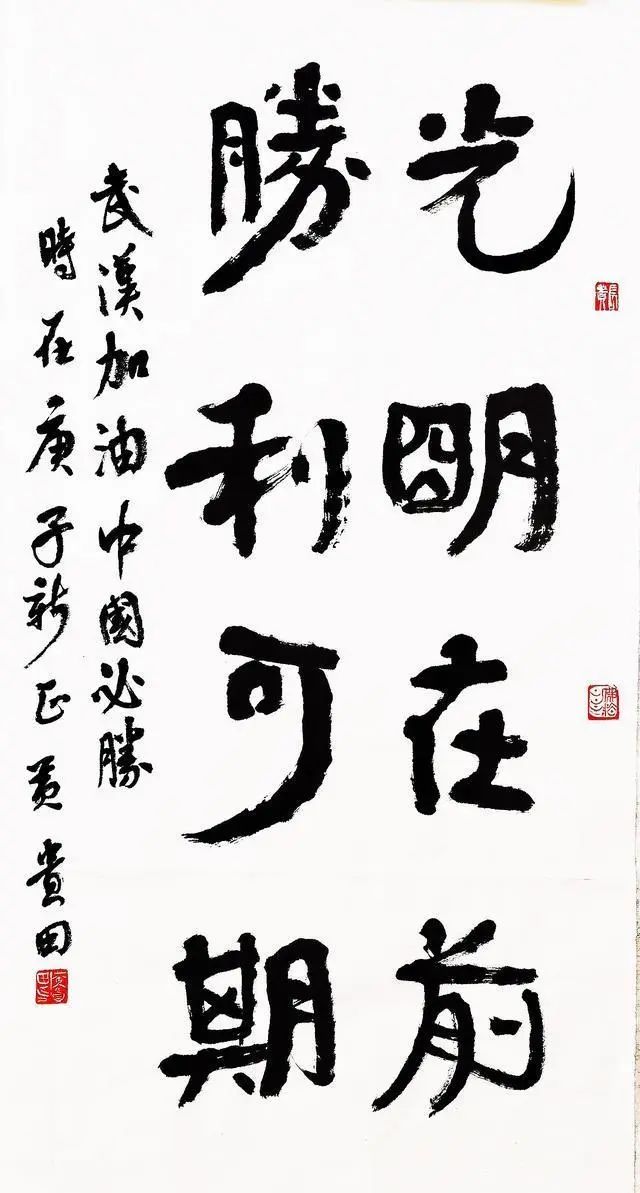 光明在前
勝利可期
武漢加油中國必勝
時在庚子新正黃貴田